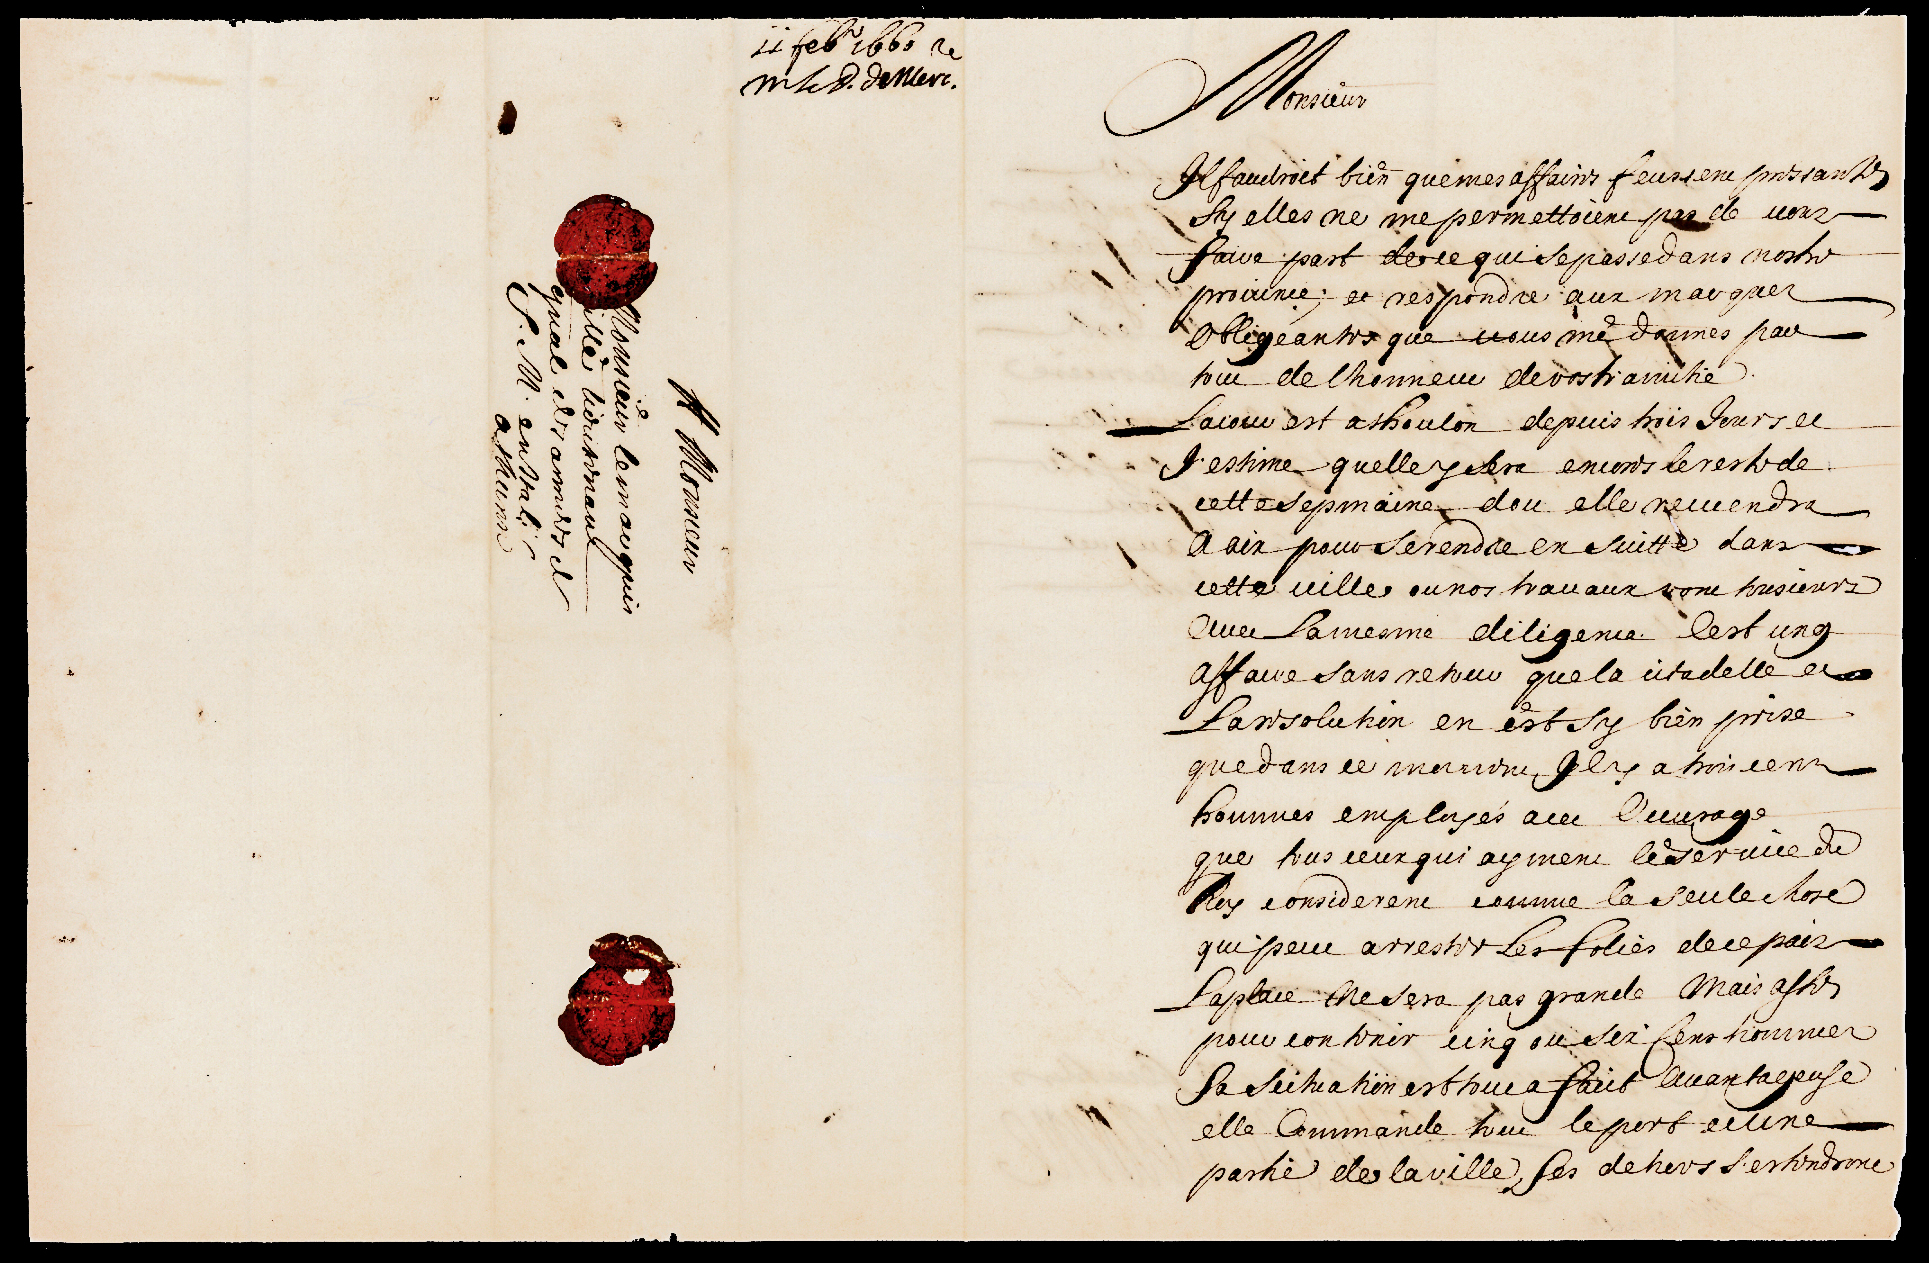 11 feb.r 1660 de
m. le D. de Merc.
A Monsieur
Monsieur le marquis
ville lieutenant
gnal des armées de
S. M. en Italie
a Thurin
Monsieur
Il faudroit bien que mes affaires feussent pressantes
sy elles ne me permettoient pas de vous
faire part de ce qui se passe dans nostre
province, et respondre aux marques
obligeantes que vous me donnes par
tout de lhonneur de vostre amitie.
La cour est a Thoulon depuis trois Jours et
J'estime quelle y sera encores le reste de
cette sepmaine dou elle reviendra
a aix pour se rendre en suitte dans
cette ville ou nos travaux vont tousiours
avec La mesme diligence. Cest ung
affaire sans retour que la citadelle et
La resolution en est sy bien prise
que dans ce moment Il y a trois cens
hommes employés avec Ouvrage
que tous ceux qui ayment le service du
Roy considerent comme la seule chose
qui peut arrester Les folies de ce pais
La place ne sera pas grande Mais asses
pour contenir cinq ou six Cens hommes
Sa scituation est tout a fait avantageuse
elle Commande tout le port et une
partie de la ville, Ses dehors s'estendront